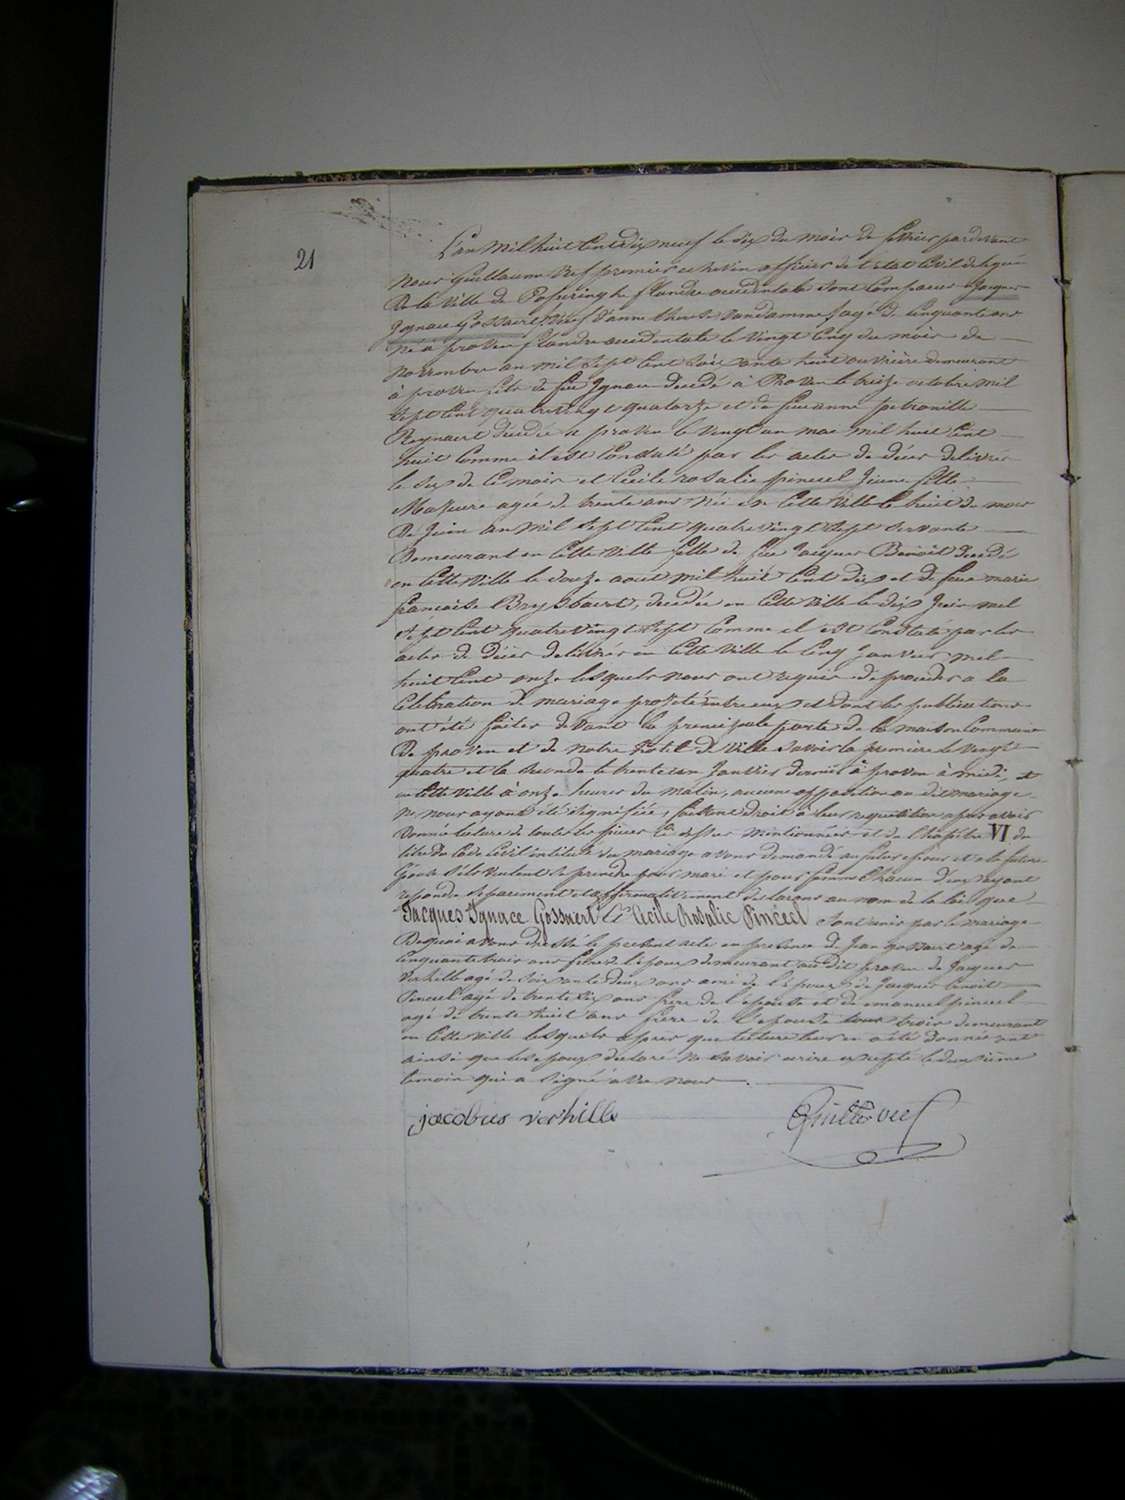 21
L'an Mil huit Cent dix neuf le dix du mois de fevrier pardevant
Nous Guillaume Vef premier echevin officier de l'etat Civil delegué
De la Ville de Poperinghe flandre occidentale sont Comparus Jacques
Ignace Gossaert Veuf d'anne therese Vandamme agé de Cinquante ans
Né à proven flandre occidentale le vingt Cinq du mois de
Novembre an mil sept Cent soixante huit ouvrière demeurant
à proven fils de feu Ignace decedé à Proven le treize octobre mil
sept Cent quatrevingt quatorze et de feue anne petronille
Reynaert decedée a proven le vingt un mai mil huit Cent
huit Comme il est Constaté par les actes de deces delivrés
le dix de Ce mois et Cecile rosalie pinceel Jeune fille
Majeure agée de trente ans Née en Cette Ville le huit du mois
De Juin an Mil sept Cent quatrevingt sept servante
Demeurant en Cette Ville fille de feu Jacques Benoit decedé
en Cette Ville le douze aout mil huit Cent dix et de feue marie
francoise decedée en Cette Ville le dix Juin mil
sept Cent quatrevingt sept Comme il est Constaté par les
actes de Déces delivrés en Cette Ville le Cinq Janvier mil
huit Cent onze lesquels nous ont requis de proceder a la
Celebration du mariage projeté entre eux et dont les publications
ont été faites devant la principale porte de la maison Commune
De proven et de notre hotel de Ville savoir la première le vingt
quatre et la seconde le trente un Janvier dernier à proven à midi, et
en Cette Ville à onze heures du matin, aucune opposition au dit mariage
ne nous ayant été signifiée, faisant droit à leur requisition apres avoir
Donnée lecture de toutes les pieces Ci dessus mentionnées et du Chapitre VI du
titre du Code Civil intitulé du mariage avons demandé au futur epoux et a la future
epouse s'ils veulent se prendre pour mari et pour femme Chacun d'eux ayant
repondu separement et affirmativement declarons au nom de la loi que
Jacques Ignace Gossaert et Cecile Rosalie Pinceel sont unis par le mariage
De quoi avons dressé le present acte en presence de Jean Gossaert agé de
Cinquante trois ans frere de l'epoux demeurant au dit proven de Jacques
Verhille agé de soixante deux ans ami de l'epoux de Jacques benoit
Pinceel agé de trente six ans frere de l'epouse et de emanuel pinceel
agé de trente huit ans frere de l'epouse tous trois demeurant
en Cette Ville lesquels apres que lecture leur en a été donnée ont
ainsi que les epoux declaré ne savoir ecrire excepté le deuxieme
temoin qui a signé avec nous
jacobus verhille